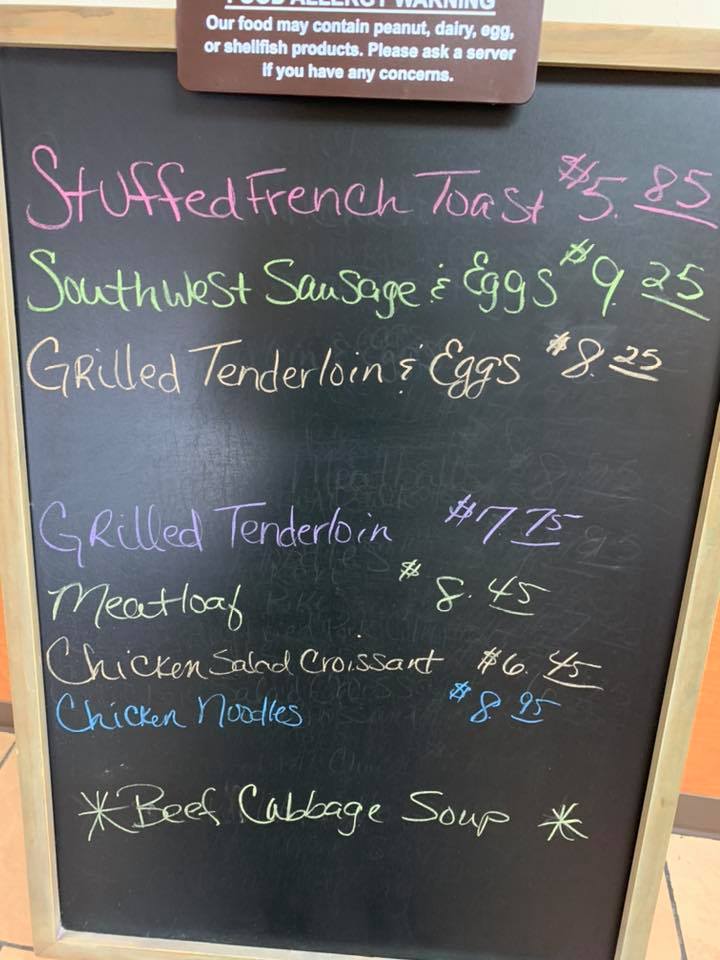 FOOD ALLERGY WARNING
Our food may contain peanut, dairy, egg,
or shellfish products. Please ask a server
if you have any concerns.
Stuffed French Toast $5.85
Southwest Sausage & Eggs $9.25
Grilled Tenderloin & Eggs $8.25
Grilled Tenderloin $7.75
Meatloaf $8.45
Chicken Salad Croissant $6.45
Chicken Noodles $8.95
*Beef Cabbage Soup *